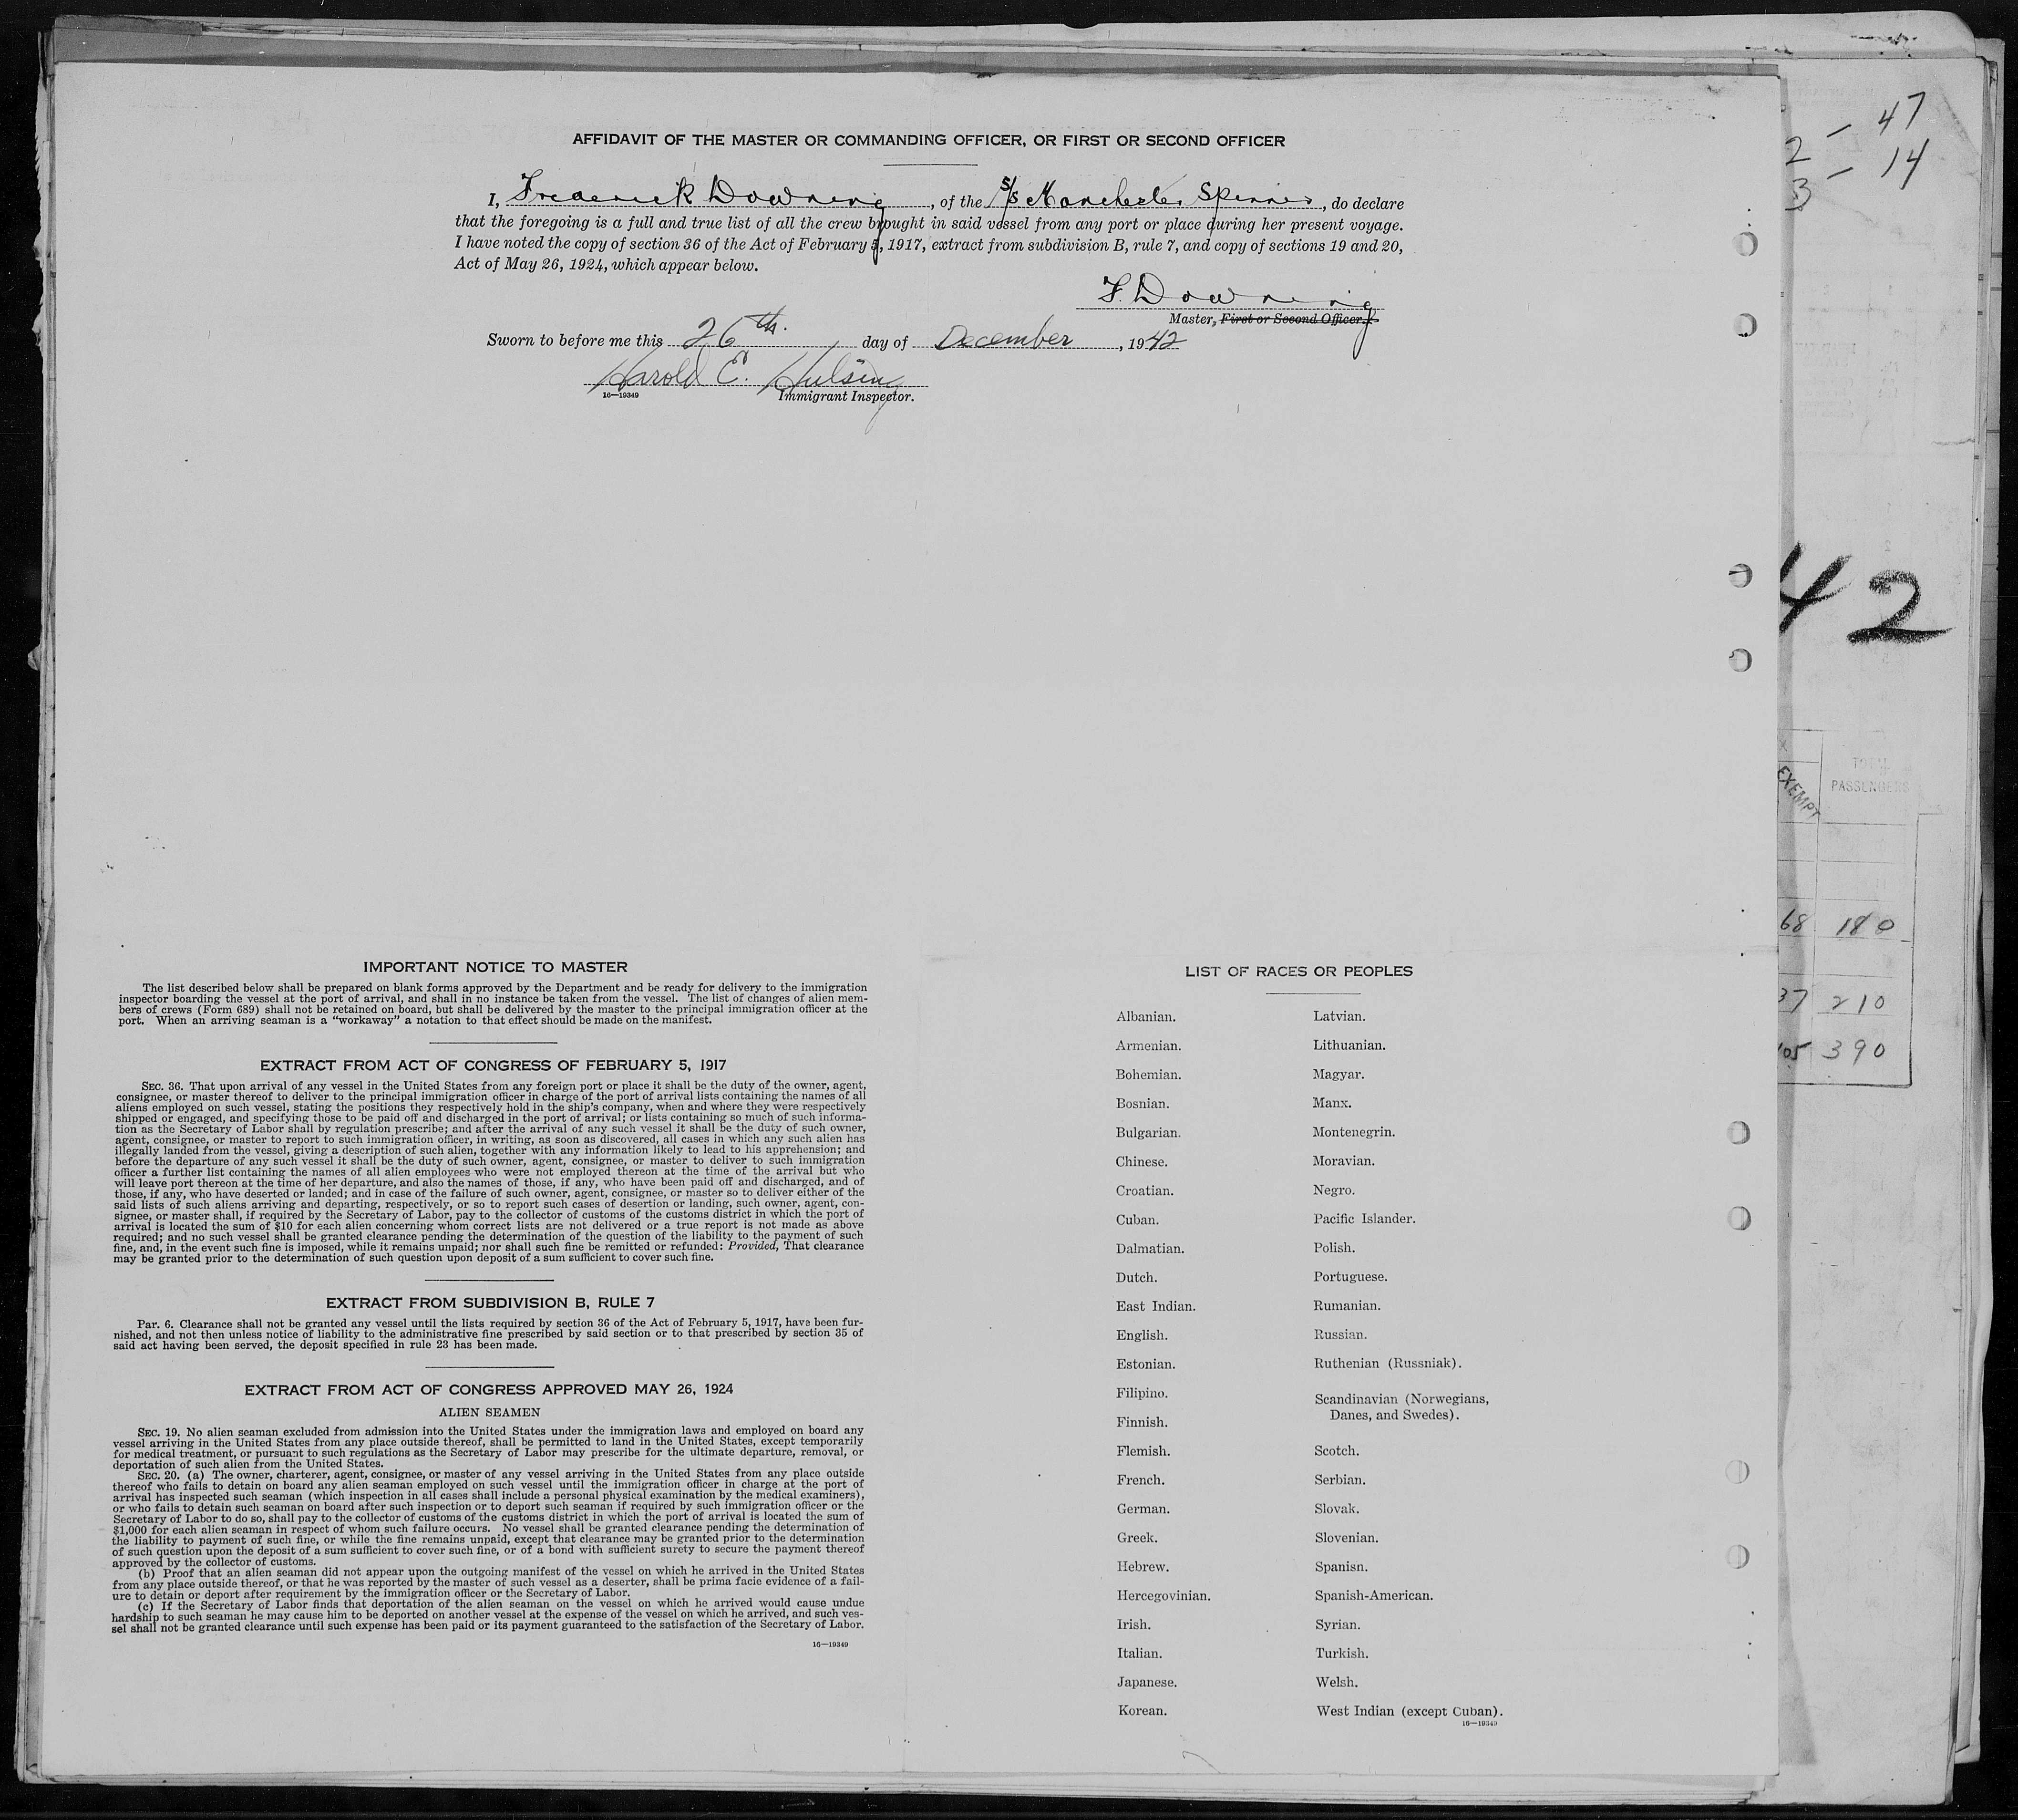 AFFIDAVIT OF THE MASTER OR COMMANDING OFFICER, OR FIRST OR SECOND OFFICER
I, Frederick Downing, of the S/S Manchester Spinner, do declare
that the foregoing is a full and true list of all the crew brought in said vessel from any port or place during her present voyage.
I have noted the copy of section 36 of the Act of February 5, 1917, extract from subdivision B, rule 7, and copy of sections 19 and 20,
Act of May 26, 1924, which appear below.
F. Downing
Master, First or Second Officer.
Sworn to before me this 26th. day of December, 1942
Harold E. Hulsing
16—19349 Immigrant Inspector.
IMPORTANT NOTICE TO MASTER
The list described below shall be prepared on blank forms approved by the Department and be ready for delivery to the immigration
inspector boarding the vessel at the port of arrival, and shall in no instance be taken from the vessel. The list of changes of alien mem-
bers of crews (Form 689) shall not be retained on board, but shall be delivered by the master to the principal immigration officer at the
port. When an arriving seaman is a "workaway" a notation to that effect should be made on the manifest.
EXTRACT FROM ACT OF CONGRESS OF FEBRUARY 5, 1917
SEC. 36. That upon arrival of any vessel in the United States from any foreign port or place it shall be the duty of the owner, agent,
consignee, or master thereof to deliver to the principal immigration officer in charge of the port of arrival lists containing the names of all
aliens employed on such vessel, stating the positions they respectively hold in the ship's company, when and where they were respectively
shipped or engaged, and specifying those to be paid off and discharged in the port of arrival; or lists containing so much of such informa-
tion as the Secretary of Labor shall by regulation prescribe; and after the arrival of any such vessel it shall be the duty of such owner,
agent, consignee, or master to report to such immigration officer, in writing, as soon as discovered, all cases in which any such alien has
illegally landed from the vessel, giving a description of such alien, together with any information likely to lead to his apprehension; and
before the departure of any such vessel it shall be the duty of such owner, agent, consignee, or master to deliver to such immigration
officer a further list containing the names of all alien employees who were not employed thereon at the time of the arrival but who
will leave port thereon at the time of her departure, and also the names of those, if any, who have been paid off and discharged, and of
those, if any, who have deserted or landed; and in case of the failure of such owner, agent, consignee, or master so to deliver either of the
said lists of such aliens arriving and departing, respectively, or so to report such cases of desertion or landing, such owner, agent, con-
signee, or master shall, if required by the Secretary of Labor, pay to the collector of customs of the customs district in which the port of
arrival is located the sum of $10 for each alien concerning whom correct lists are not delivered or a true report is not made as above
required; and no such vessel shall be granted clearance pending the determination of the question of the liability to the payment of such
fine, and, in the event such fine is imposed, while it remains unpaid; nor shall such fine be remitted or refunded: Provided, That clearance
may be granted prior to the determination of such question upon deposit of a sum sufficient to cover such fine.
EXTRACT FROM SUBDIVISION B, RULE 7
Par. 6. Clearance shall not be granted any vessel until the lists required by section 36 of the Act of February 5, 1917, have been fur-
nished, and not then unless notice of liability to the administrative fine prescribed by said section or to that prescribed by section 35 of
said act having been served, the deposit specified in rule 23 has been made.
EXTRACT FROM ACT OF CONGRESS APPROVED MAY 26, 1924
ALIEN SEAMEN
SEC. 19. No alien seaman excluded from admission into the United States under the immigration laws and employed on board any
vessel arriving in the United States from any place outside thereof, shall be permitted to land in the United States, except temporarily
for medical treatment, or pursuant to such regulations as the Secretary of Labor may prescribe for the ultimate departure, removal, or
deportation of such alien from the United States.
SEC. 20. (a) The owner, charterer, agent, consignee, or master of any vessel arriving in the United States from any place outside
thereof who fails to detain on board any alien seaman employed on such vessel until the immigration officer in charge at the port of
arrival has inspected such seaman (which inspection in all cases shall include a personal physical examination by the medical examiners),
or who fails to detain such seaman on board after such inspection or to deport such seaman if required by such immigration officer or the
Secretary of Labor to do so, shall pay to the collector of customs of the customs district in which the port of arrival is located the sum of
$1,000 for each alien seaman in respect of whom such failure occurs. No vessel shall be granted clearance pending the determination of
the liability to payment of such fine, or while the fine remains unpaid, except that clearance may be granted prior to the determination
of such question upon the deposit of a sum sufficient to cover such fine, or of a bond with sufficient surety to secure the payment thereof
approved by the collector of customs.
(b) Proof that an alien seaman did not appear upon the outgoing manifest of the vessel on which he arrived in the United States
from any place outside thereof, or that he was reported by the master of such vessel as a deserter, shall be prima facie evidence of a fail-
ure to detain or deport after requirement by the immigration officer or the Secretary of Labor.
(c) If the Secretary of Labor finds that deportation of the alien seaman on the vessel on which he arrived would cause undue
hardship to such seaman he may cause him to be deported on another vessel at the expense of the vessel on which he arrived, and such ves-
sel shall not be granted clearance until such expense has been paid or its payment guaranteed to the satisfaction of the Secretary of Labor.
16—19349
LIST OF RACES OR PEOPLES
Albanian. Latvian.
Armenian. Lithuanian.
Bohemian. Magyar.
Bosnian. Manx.
Bulgarian. Montenegrin.
Chinese. Moravian.
Croatian. Negro.
Cuban. Pacific Islander.
Dalmatian. Polish.
Dutch. Portuguese.
East Indian. Rumanian.
English. Russian.
Estonian. Ruthenian (Russniak).
Filipino. Scandinavian (Norwegians,
Finnish. Danes, and Swedes).
Flemish. Scotch.
French. Serbian.
German. Slovak.
Greek. Slovenian.
Hebrew. Spanisn.
Hercegovinian. Spanish-American.
Irish. Syrian.
Italian. Turkish.
Japanese. Welsh.
Korean. West Indian (except Cuban).
16—19349
2 — 47
3 — 14
42
EXEMPT
TOTAL
PASSENGERS
68 180
37 210
105 390